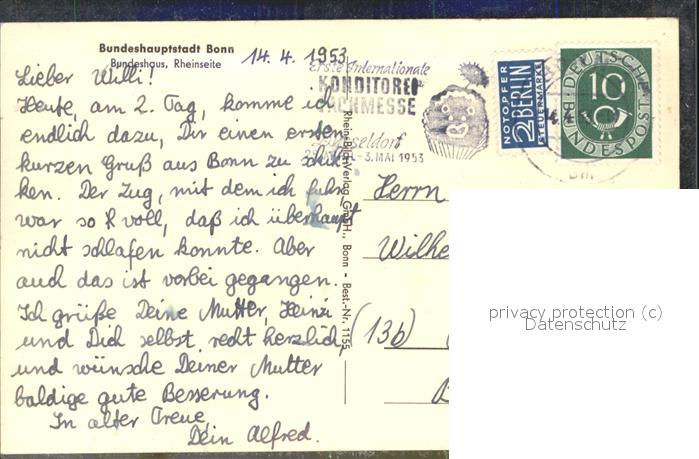 Bundeshauptstadt Bonn
Bundeshaus, Rheinseite
14.4.1953
Lieber Willi!
Heute, am 2. Tag, komme ich
endlich dazu, Dir einen ersten
kurzen Gruß aus Bonn zu schik-
ken. Der Zug, mit dem ich fuhr,
war so voll, daß ich überhaupt
nicht schlafen konnte. Aber
auch das ist vorbei gegangen.
Ich grüße Deine Mutter, Heinz
und Dich selbst recht herzlich
und wünsche Deiner Mutter
baldige gute Besserung.
In alter Treue,
Dein Alfred.
Rhein-Bild-Verlag GmbH., Bonn - Best.-Nr. 1155
Erste Internationale
KONDITOREI
FACHMESSE
Düsseldorf
- 3. MAI 1953
NOTOPFER
2 BERLIN
STEUERMARKE
DEUTSCHE
10
BUNDESPOST
Herrn
Wilhe
(13b)
privacy protection (c)
Datenschutz